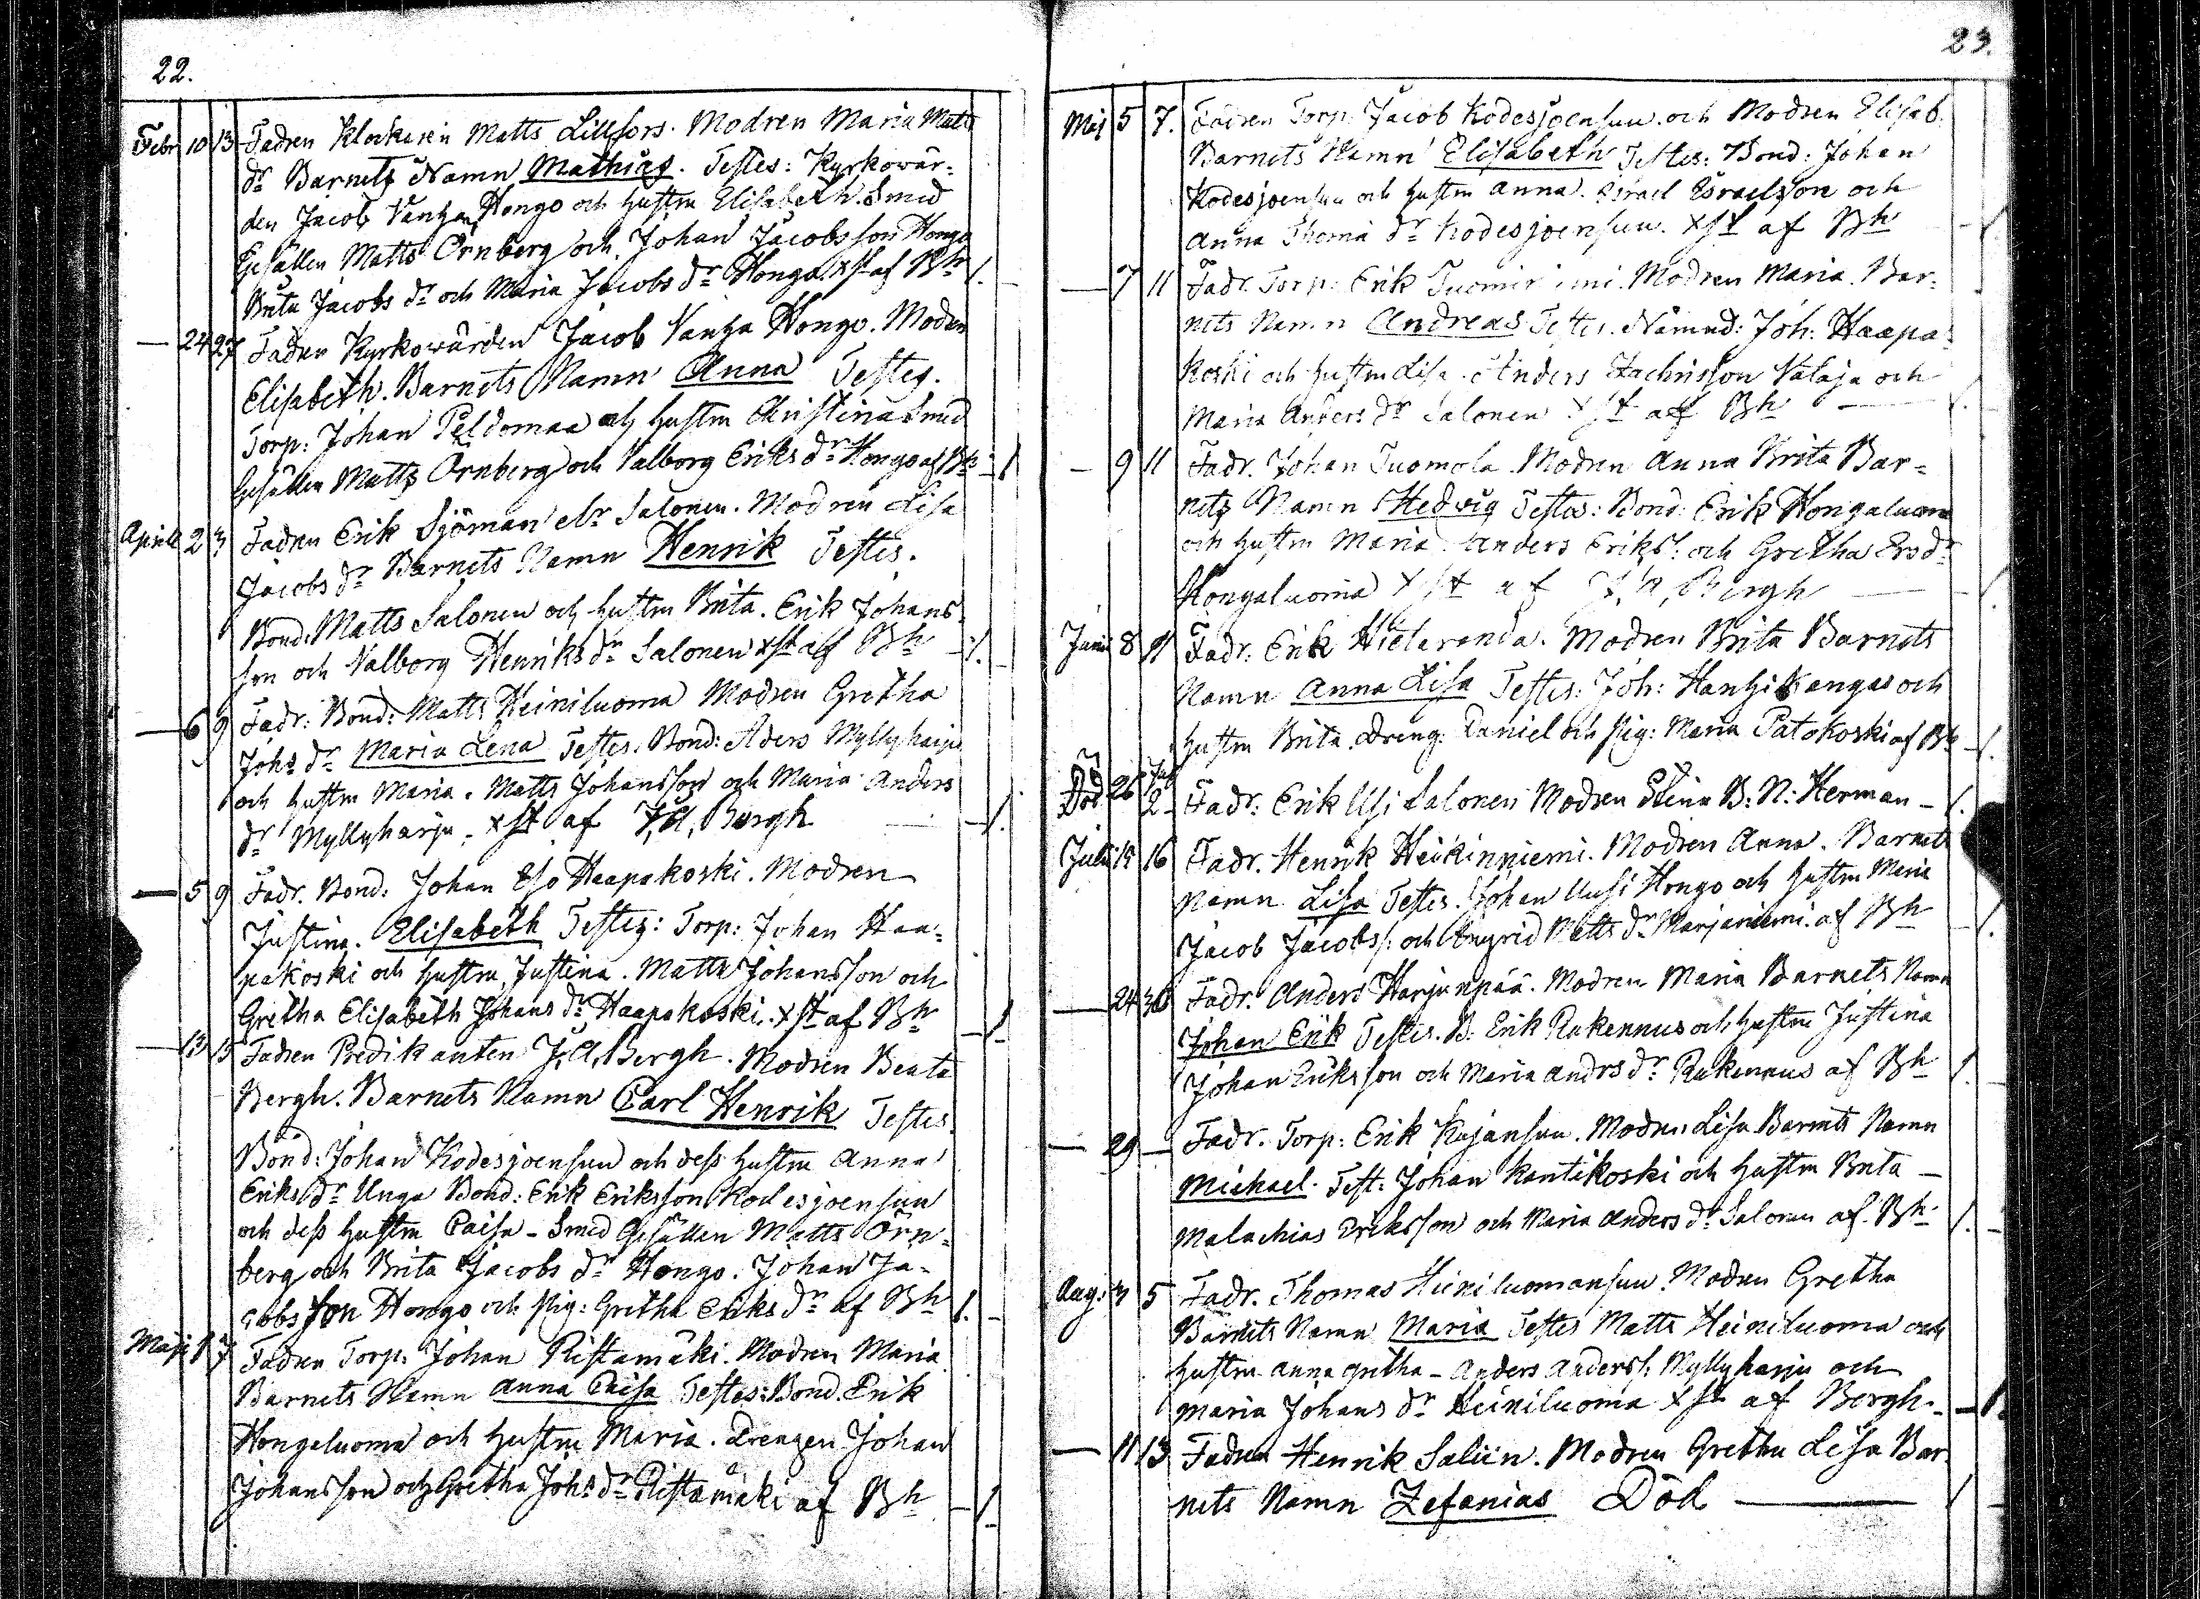 22.
Febr 10 13 Fadren Klockaren Matts Lillfors. Modren Maria Matts
dr Barnets Namn Mathias. Testes: Kyrkowär-
den Jacob Vanha Hongo och hustru Elisabeth. Smed
Gesällen Matts Örnberg och Johan Jacobsson Hongo
Brita Jacobs dr och Maria Jacobs dr Hongo. xst af Bh
— 24 27 Fadren Kyrkowärden Jacob Vanha Hongo. Modren
Elisabeth. Barnets Namn Anna Testes.
Torp: Johan Peldomaa och hustru Christina Smed
Gesällen Matts Örnberg och Valborg Eriks dr Hongo af Bh
Aprill 2 3 Fadren Erik Sjöman Salonen. Modren Lisa
Jacobs dr Barnets Namn Henrik Testes.
Bond: Matts Salonen och hustru Brita. Erik Johans
son och Valborg Henriks dr Salonen xst af Bh
— 6 9 Fadr: Bond: Matts Heiniluoma Modren Gretha
Johs dr Maria Lena Testes. Bond: Aders Myllyharju
och hustru Maria. Matts Johansson och Maria Anders
dr Myllyharju. xst af J, A, Bergh
— 5 9 Fadr. Bond: Johan Eso Haapakoski. Modren
Justina. Elisabeth Testes: Torp: Johan Haa-
pakoski och hustru Justina. Matts Johansson och
Gretha Elisabeth Johans dr Haapakoski. xst af Bh
— 13 15 Fadren Predikanten J, A, Bergh. Modren Beata
Bergh. Barnets Namn Carl Henrik Testes.
Bond: Johan Kodesjoensuu och dess hustru Anna
Eriks dr Unga Bond: Erik Eriksson Kodesjoensuu
och dess hustru Caisa - Smed Gesällen Matts Örn-
berg och Brita Jacobs dr Hongo. Johan Ja-
cobsson Hongo och Pig: Gretha Eriks dr af Bh
Maji 1 7 Fadren Torp: Johan Ristamäki. Modren Maria
Barnets Namn Anna Caisa Testes: Bond. Erik
Hongaluoma och hustru Maria. Drengen Johan
Johansson och Gretha Johs dr Ristamäki af Bh
23.
Maj 5 7. Fadren Torp: Jacob Kodesjoensuu och Modren Elisab.
Barnets Namn Elisabeth Testes: Bond: Johan
Kodesjoensuu och hustru Anna. Israel Israelsson och
Anna Thoma dr Kodesjoensuu. xst af Bh
— 7 11 Fadr. Torp: Erik Modren Maria. Bar-
nets Namn Andreas Testes. Nämnd: Joh: Haapa-
koski och hustru Lisa. Anders Zachrisson Valaja och
Maria Anders dr Salonen xst af Bh
— 9 11 Fadr. Johan Tuomola. Modren Anna Brita Bar-
nets Namn Hedvig Testes: Bond: Erik Hongaluoma
och hustru Maria. Anders Eriks: och Gretha Ers dr
Hongaluoma xst af J, A, Bergh
Junii 8 9 Fadr: Erik Hietaranda. Modren Brita Barnets
Namn Anna Lisa Testes: Joh: Hantzikangas och
hustru Brita. Dreng: Daniel och Pig: Maria Patokoski af Bh
Död 26 Jul 2 - Fadr: Erik Usi Salonen Modren Stina B: N: Herman -
Julii 15 16 Fadr. Henrik Heikinniemi. Modren Anna. Barnets
Namn Lisa Testes. Johan Uusi Hongo och hustru Maria
Jacob Jacobs: och Ingrid Matts dr Marjaniemi. af Bh
— 24 30 Fadr. Anders Harjunpää. Modren Maria Barnets Namn
Johan Erik Testes. B: Erik Rakennus och hustru Justina
Johan Eriksson och Maria Andrs dr Rakennus af Bh
— 29 — Fadr. Torp: Erik Kujansuu. Modren Lisa Barnets Namn
Michael. Test: Johan Kantikoski och hustru Brita -
Malachias Eriksson och Maria Anders dr Salonen af Bh
Aug: 3 5 Fadr. Thomas Heiniluomansuu. Modren Gretha
Barnets Namn Maria Testes Matts Heiniluoma och
hustru Anna Gretha - Anders Anderss: Myllyharju och
Maria Johans dr Heiniluoma xst af Bergh.
— 11 13 Fadren Henrik Salin. Modren Gretha Lisa Bar
nets Namn Zefanias Död